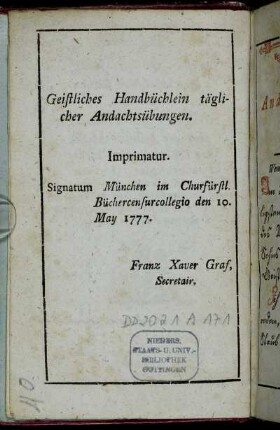 Geiſtliches Handbüchlein tägli-
cher Andachtsübungen.
Imprimatur.
Signatum München im Churfürſtl.
Büchercenſurcollegio den 10.
May 1777.
Franz Xaver Graf,
Secretair.
DD2021 A 171
NIEDERS.
STAATS- U. UNIV.-
BIBLIOTHEK
GÖTTINGEN